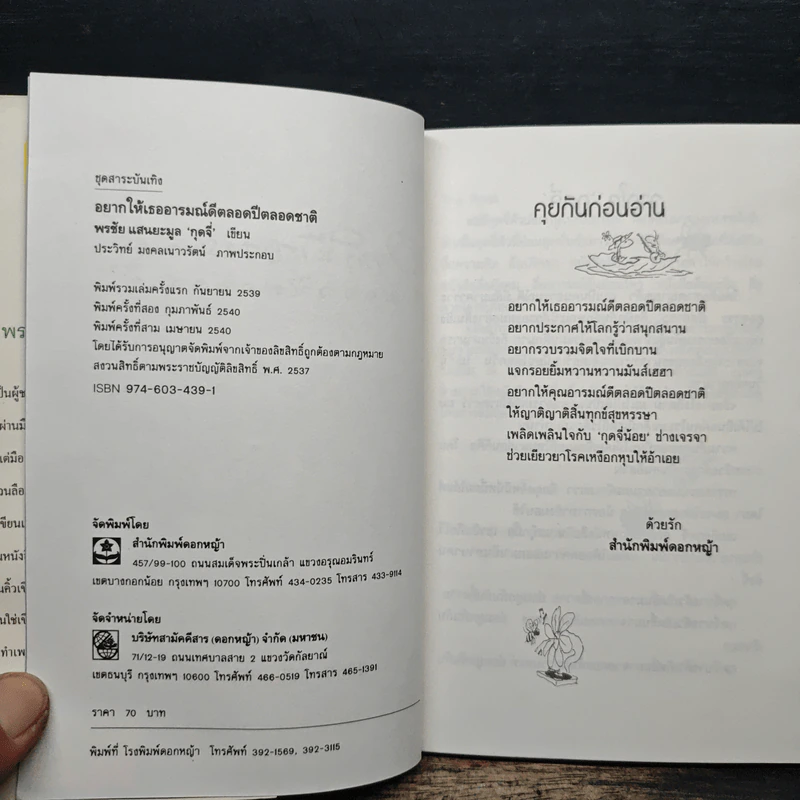 ชุดสาระบันเทิง
อยากให้เธออารมณ์ดีตลอดปีตลอดชาติ
พรชัย แสนยะมูล 'กุดจี่' เขียน
ประวิทย์ มงคลเนาวรัตน์ ภาพประกอบ
พิมพ์รวมเล่มครั้งแรก กันยายน 2539
พิมพ์ครั้งที่สอง กุมภาพันธ์ 2540
พิมพ์ครั้งที่สาม เมษายน 2540
โดยได้รับการอนุญาตจัดพิมพ์จากเจ้าของลิขสิทธิ์ถูกต้องตามกฎหมาย
สงวนสิทธิ์ตามพระราชบัญญัติลิขสิทธิ์ พ.ศ. 2537
ISBN 974-603-439-1
จัดพิมพ์โดย
สำนักพิมพ์ดอกหญ้า
457/99-100 ถนนสมเด็จพระปิ่นเกล้า แขวงอรุณอมรินทร์
เขตบางกอกน้อย กรุงเทพฯ 10700 โทรศัพท์ 434-0235 โทรสาร 433-9114
จัดจำหน่ายโดย
บริษัทสามัคคีสาร (ดอกหญ้า) จำกัด (มหาชน)
71/12-19 ถนนเทศบาลสาย 2 แขวงวัดกัลยาณ์
เขตธนบุรี กรุงเทพฯ 10600 โทรศัพท์ 466-0519 โทรสาร 465-1391
ราคา 70 บาท
พิมพ์ที่ โรงพิมพ์ดอกหญ้า โทรศัพท์ 392-1569, 392-3115
คุยกันก่อนอ่าน
อยากให้เธออารมณ์ดีตลอดปีตลอดชาติ
อยากประกาศให้โลกรู้ว่าสนุกสนาน
อยากรวบรวมจิตใจที่เบิกบาน
แจกรอยยิ้มหวานหวานมันส์เฮฮา
อยากให้คุณอารมณ์ดีตลอดปีตลอดชาติ
ให้ญาติญาติสิ้นทุกข์สุขหรรษา
เพลิดเพลินใจกับ 'กุดจี่น้อย' ช่างเจรจา
ช่วยเยียวยาโรคเหงือกหุบให้อ้าเอย
ด้วยรัก
สำนักพิมพ์ดอกหญ้า